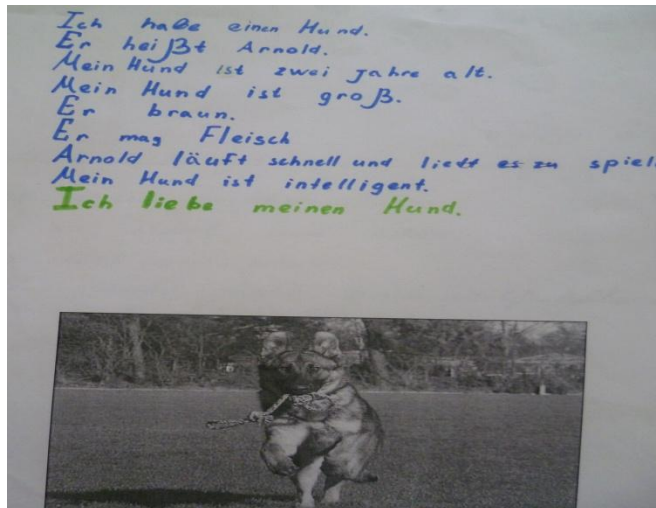 Ich habe einen Hund.
Er heißt Arnold.
Mein Hund ist zwei Jahre alt.
Mein Hund ist groß.
Er braun.
Er mag Fleisch
Arnold läuft schnell und es zu spiel
Mein Hund ist intelligent.
Ich liebe meinen Hund.